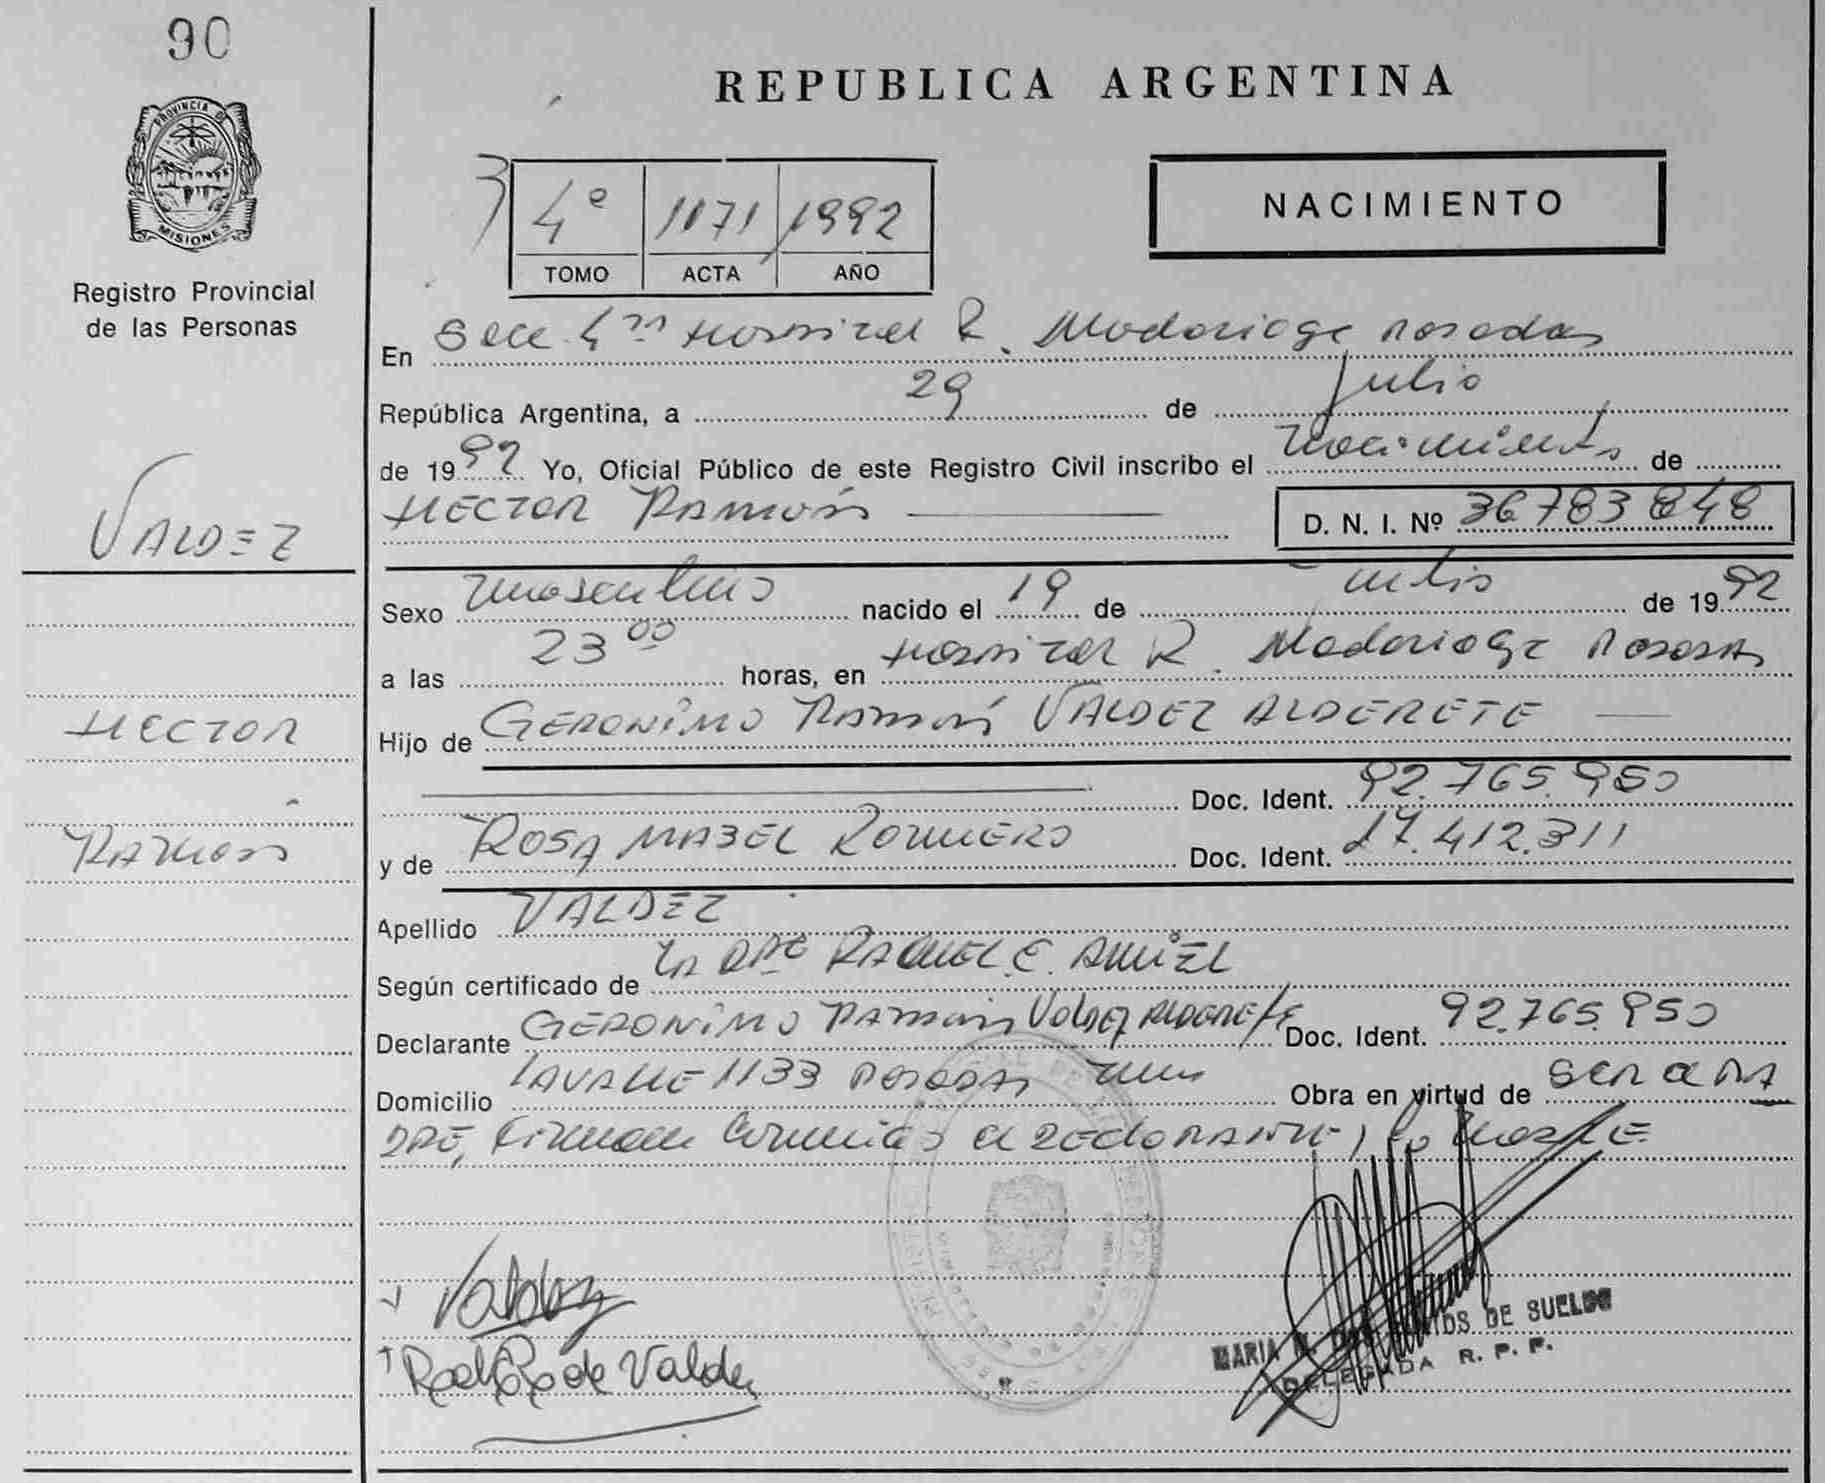 90
REPUBLICA ARGENTINA
PROVINCIA DE
MISIONES
Registro Provincial
de las Personas
4º 1171 1992
TOMO ACTA AÑO
NACIMIENTO
En Secc. 4ta Hospital R. Madariaga Posadas
República Argentina, a 29 de Julio
de 1992 Yo, Oficial Público de este Registro Civil inscribo el Nacimiento de
HECTOR RAMÓN D. N. I. Nº 36783848
VALDEZ
Sexo masculino nacido el 19 de Julio de 1992
a las 23 00 horas, en Hospital R. Madariaga Posadas
HECTOR
Hijo de GERONIMO RAMÓN VALDEZ ALDERETE
Doc. Ident. 92.765.950
RAMÓN
y de ROSA MABEL ROMERO Doc. Ident. 17.412.311
Apellido VALDEZ
Según certificado de la RAQUEL E. AMIEL
Declarante GERONIMO RAMÓN Valdez ALDERETE Doc. Ident. 92.765.950
Domicilio LAVALLE 1133 POSADAS Obra en virtud de SER
PADRE, Firman conmigo el DECLARANTE y la MADRE
Valdez
de Valdez
MARIA DE SUELDO
DELEGADA R. P. P.